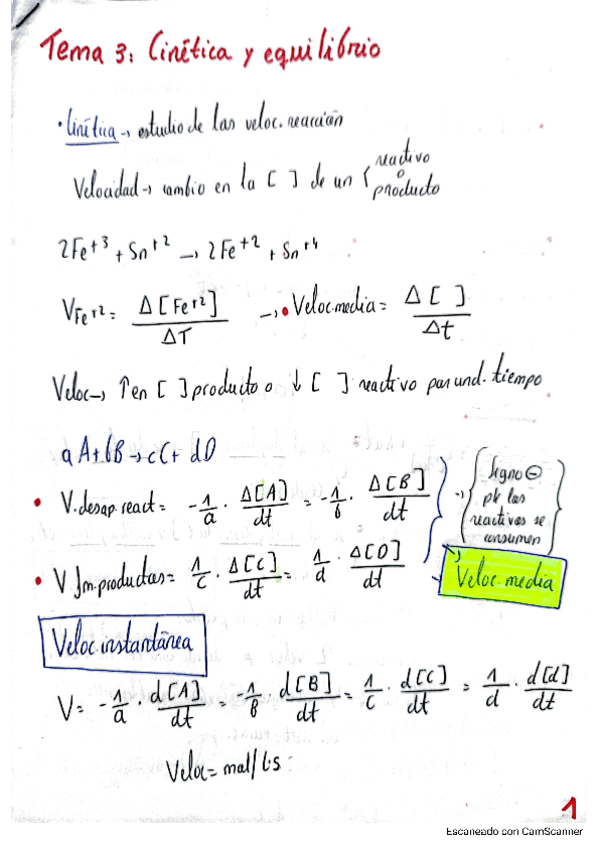 Tema 3: Cinética y equilibrio
· Cinética → estudio de las veloc. reacción
Velocidad → cambio en la [ ] de un { reactivo o producto
2Fe+3 + Sn+2 → 2Fe+2 + Sn+4
VFe+2 = Δ[Fe+2] / ΔT → • Veloc.media = Δ[ ] / Δt
Veloc → ↑ en [ ] producto o ↓ [ ] reactivo por und. tiempo
aA + bB → cC + dD
• V.desap.react = -1/a · Δ[A]/dt = -1/b · Δ[B]/dt
signo ⊖ pk las reactivos se consumen
• V.fm.productos = 1/c · Δ[C]/dt = 1/d · Δ[D]/dt
Veloc.media
Veloc.instantánea
V = -1/a · d[A]/dt = -1/b · d[B]/dt = 1/c · d[C]/dt = 1/d · d[d]/dt
Veloc = mol/L·s
1
Escaneado con CamScanner